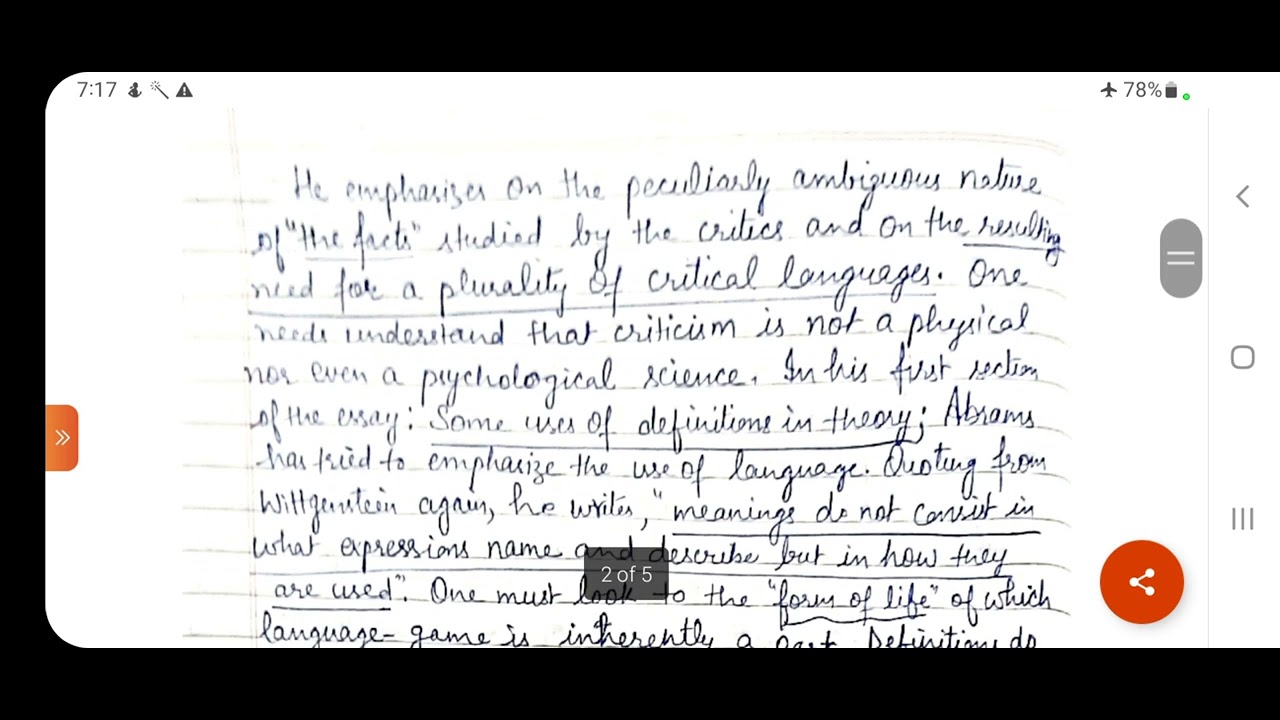 7:17
78%
He emphasizes on the peculiarly ambiguous nature
of "the facts" studied by the critics and on the resulting
need for a plurality of critical languages. One
needs understand that criticism is not a physical
nor even a psychological science. In his first section
of the essay: Some uses of definitions in theory; Abrams
has tried to emphasize the use of language. Quoting from
Wittgenstein again, he writes, "meanings do not consist in
what expressions name and describe but in how they
are used". One must look to the "form of life" of which
language-game is inherently a part. Definitions do
2 of 5